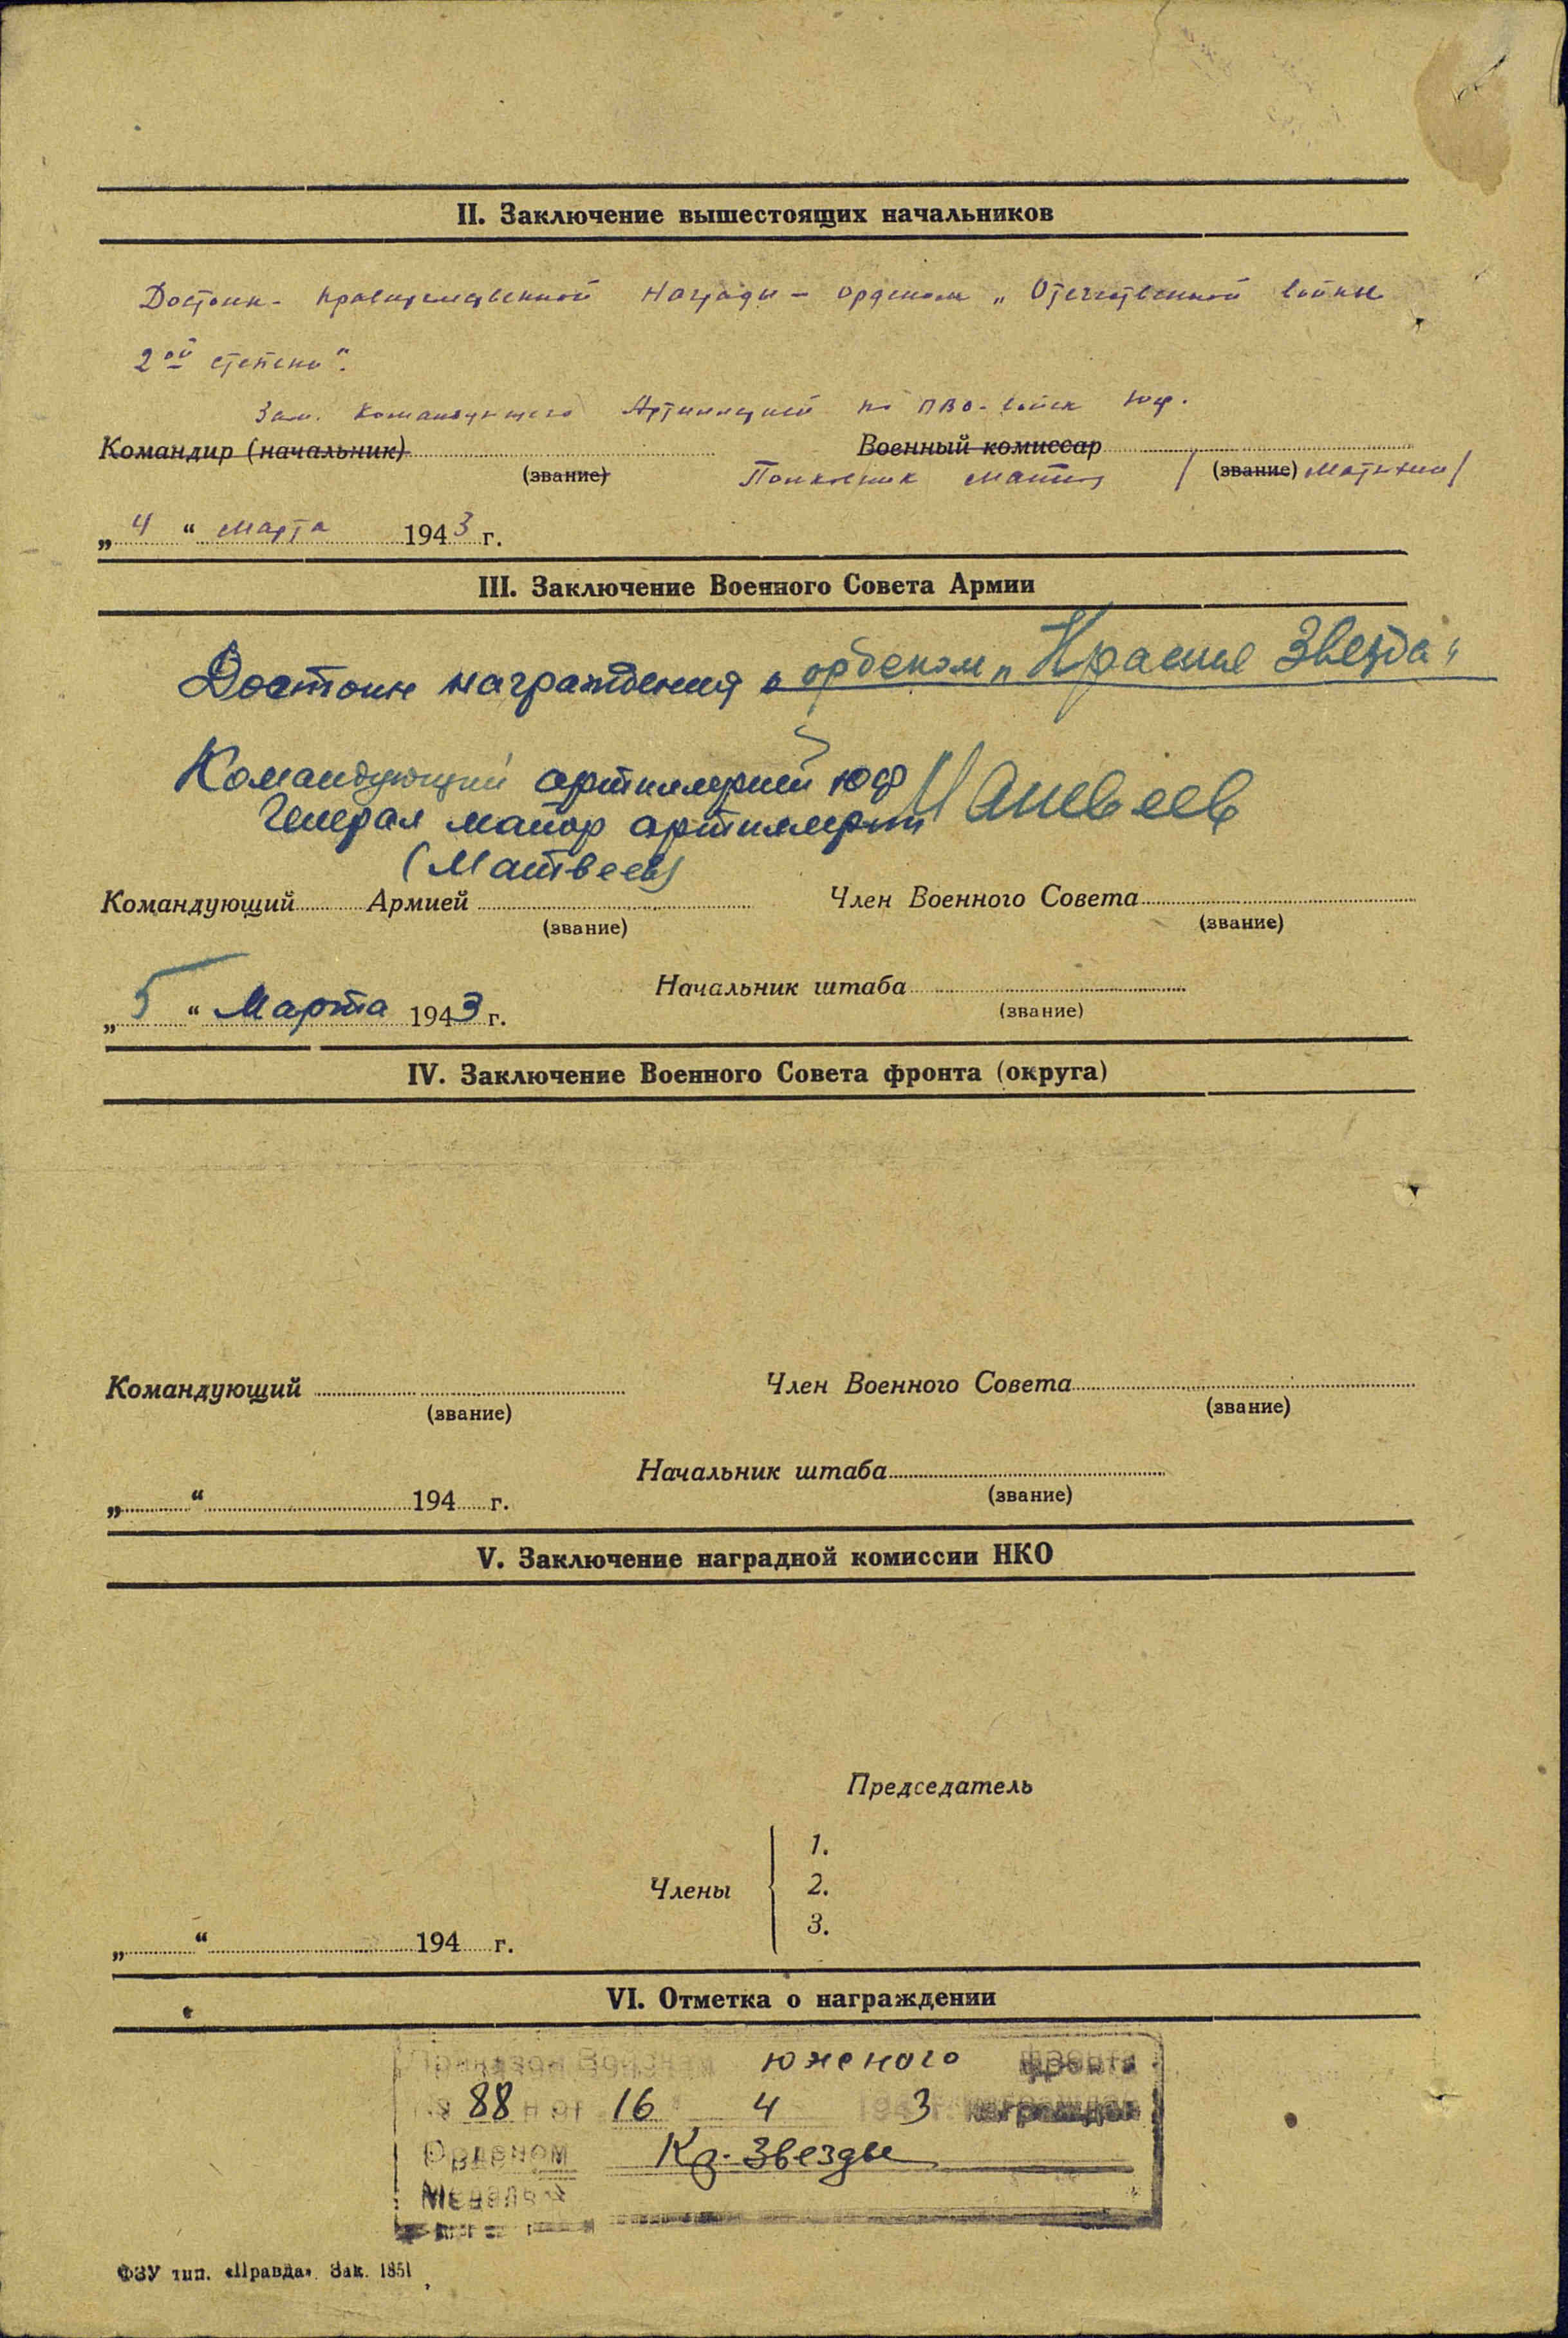 II. Заключение вышестоящих начальников
Достоин- правительственной награды - орденом „Отечественной войны
2ой степени“.
Зам. Командующего Артиллерией по ПВО- войск Юф.
Командир (начальник) Военный комиссар
(звание) Полковник (звание)
„ 4 “ марта 1943 г.
III. Заключение Военного Совета Армии
Достоин награждения орденом „Красная Звезда“
Командующий артиллерией ЮФ
Генерал майор артиллерии Матвеев
(Матвеев)
Командующий Армией Член Военного Совета
(звание) (звание)
Начальник штаба
(звание)
„ 5 “ Марта 1943 г.
IV. Заключение Военного Совета фронта (округа)
Командующий Член Военного Совета
(звание) (звание)
Начальник штаба
(звание)
„ “ 194 г.
V. Заключение наградной комиссии НКО
Председатель
1.
Члены 2.
3.
„ “ 194 г.
VI. Отметка о награждении
Приказом Войскам Южного фронта
№ 88 н от 16 4 194 3 г. награжден
Орденом Кр. Звезды
Медалью
ФЗУ тип. «Правда». Зак. 1851